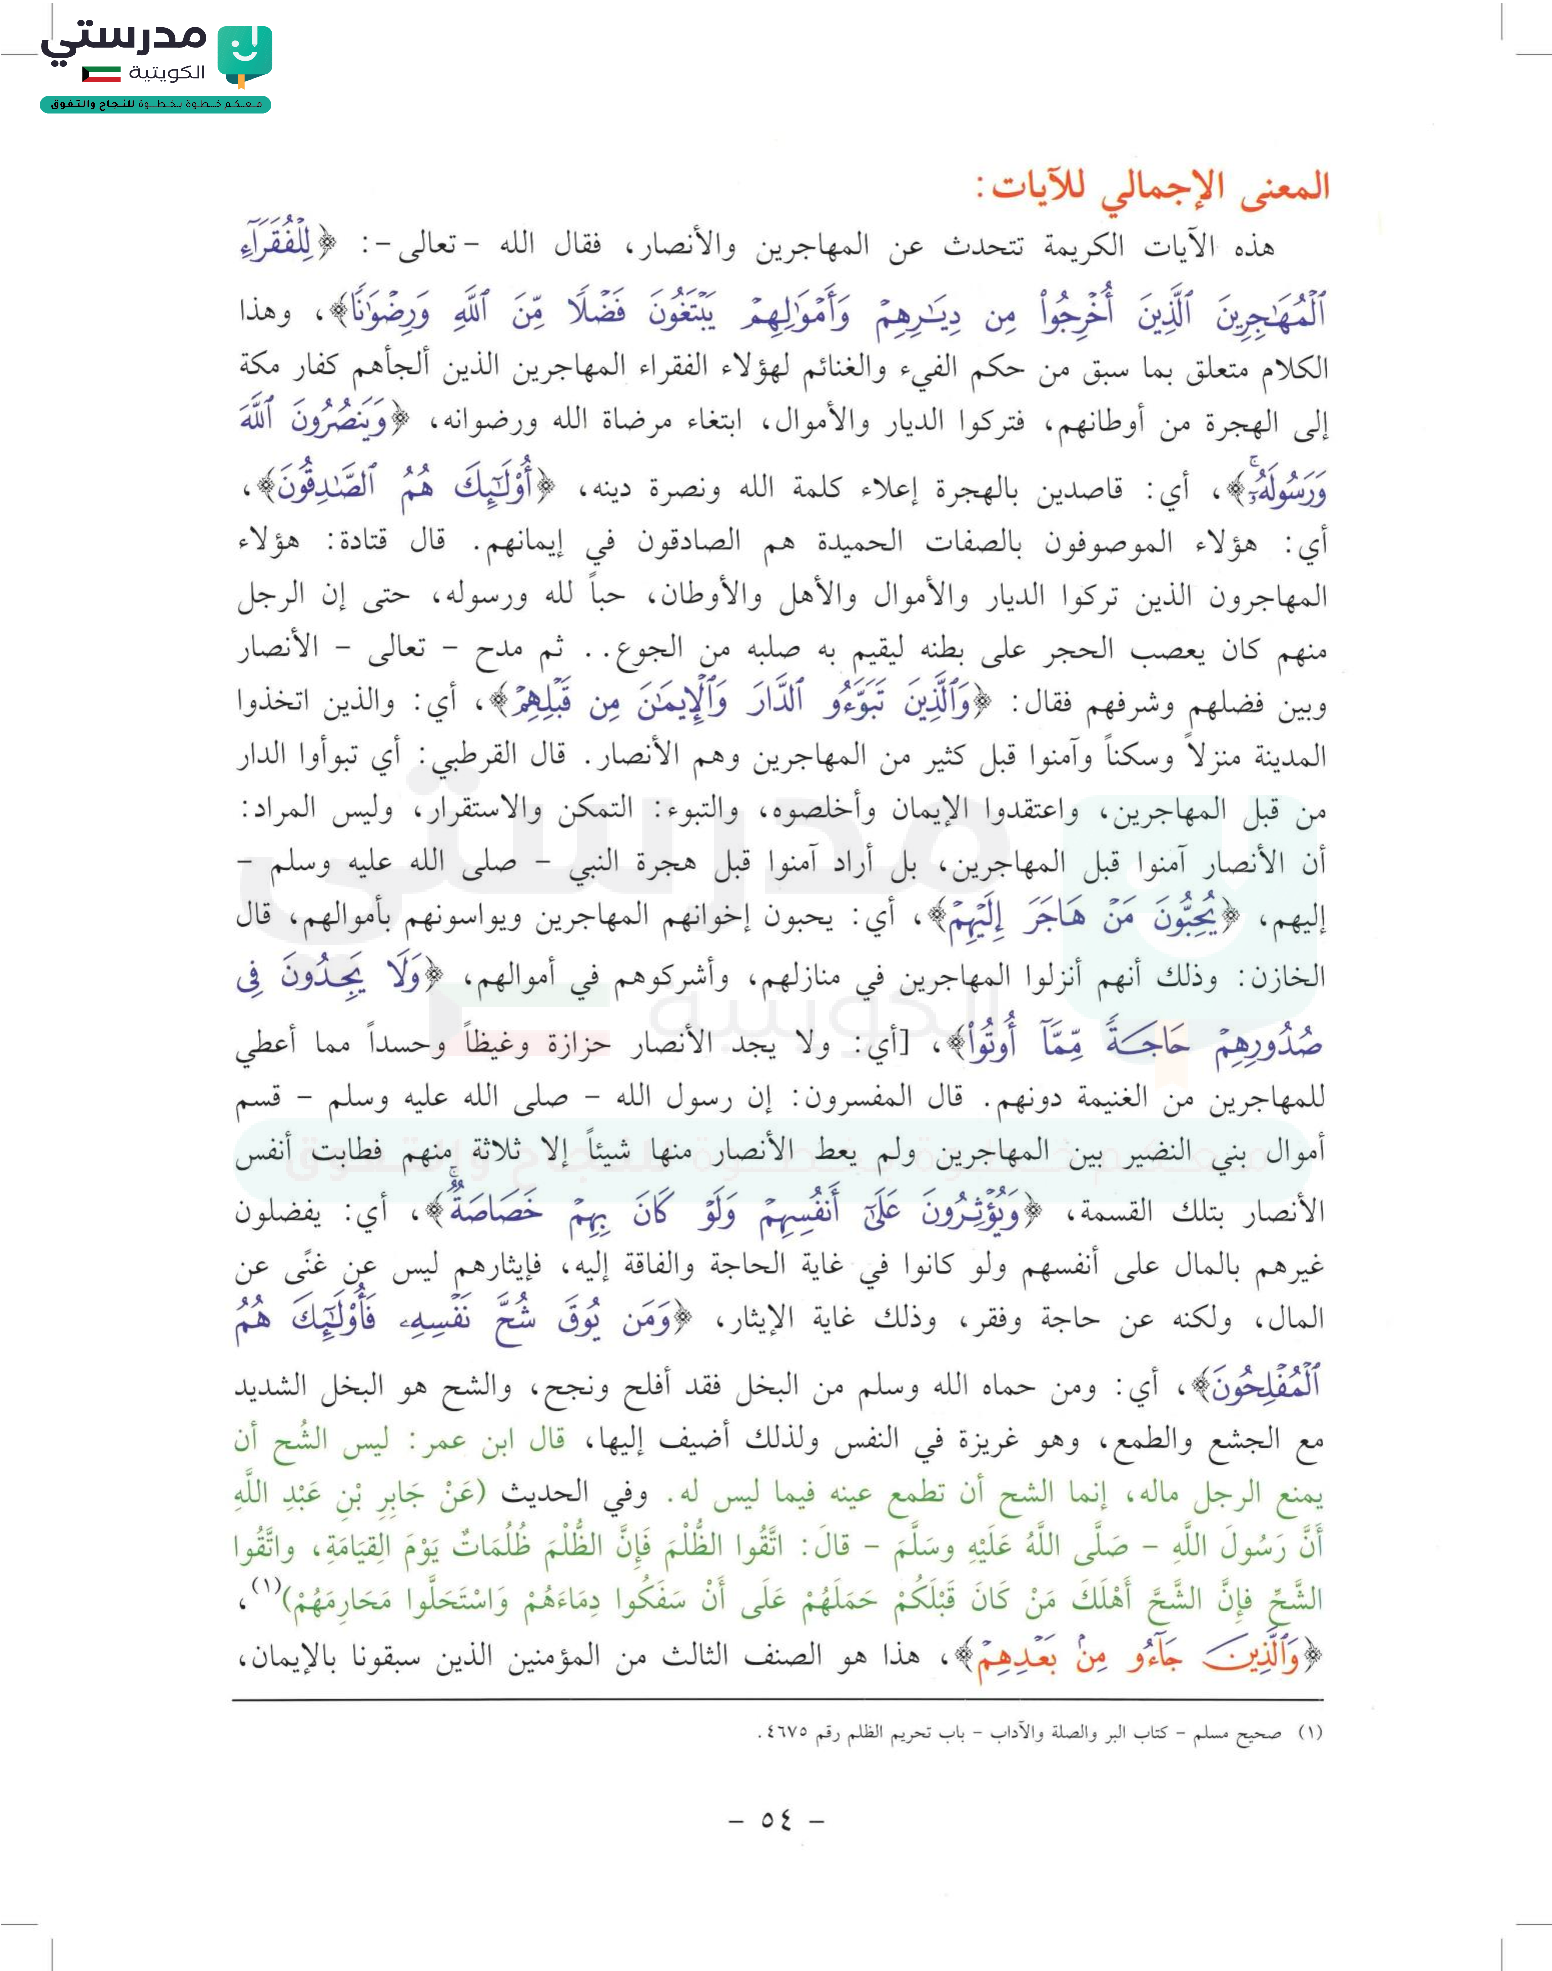 مدرستي
الكويتية
معكم خطوة بخطوة للنجاح والتفوق
المعنى الإجمالي للآيات:
هذه الآيات الكريمة تتحدث عن المهاجرين والأنصار، فقال الله -تعالى-: ﴿لِلْفُقَرَآءِ
ٱلْمُهَٰجِرِينَ ٱلَّذِينَ أُخْرِجُواْ مِن دِيَٰرِهِمْ وَأَمْوَٰلِهِمْ يَبْتَغُونَ فَضْلًا مِّنَ ٱللَّهِ وَرِضْوَٰنًا﴾، وهذا
الكلام متعلق بما سبق من حكم الفيء والغنائم لهؤلاء الفقراء المهاجرين الذين ألجأهم كفار مكة
إلى الهجرة من أوطانهم، فتركوا الديار والأموال، ابتغاء مرضاة الله ورضوانه، ﴿وَيَنصُرُونَ ٱللَّهَ
وَرَسُولَهُۥٓۚ﴾، أي: قاصدين بالهجرة إعلاء كلمة الله ونصرة دينه، ﴿أُوْلَٰٓئِكَ هُمُ ٱلصَّٰدِقُونَ﴾،
أي: هؤلاء الموصوفون بالصفات الحميدة هم الصادقون في إيمانهم. قال قتادة: هؤلاء
المهاجرون الذين تركوا الديار والأموال والأهل والأوطان، حباً لله ورسوله، حتى إن الرجل
منهم كان يعصب الحجر على بطنه ليقيم به صلبه من الجوع.. ثم مدح - تعالى - الأنصار
وبين فضلهم وشرفهم فقال: ﴿وَٱلَّذِينَ تَبَوَّءُو ٱلدَّارَ وَٱلْإِيمَٰنَ مِن قَبْلِهِمْ﴾، أي: والذين اتخذوا
المدينة منزلاً وسكناً وآمنوا قبل كثير من المهاجرين وهم الأنصار. قال القرطبي: أي تبوأوا الدار
من قبل المهاجرين، واعتقدوا الإيمان وأخلصوه، والتبوء: التمكن والاستقرار، وليس المراد:
أن الأنصار آمنوا قبل المهاجرين، بل أراد آمنوا قبل هجرة النبي - صلى الله عليه وسلم -
إليهم، ﴿يُحِبُّونَ مَنْ هَاجَرَ إِلَيْهِمْ﴾، أي: يحبون إخوانهم المهاجرين ويواسونهم بأموالهم، قال
الخازن: وذلك أنهم أنزلوا المهاجرين في منازلهم، وأشركوهم في أموالهم، ﴿وَلَا يَجِدُونَ فِى
صُدُورِهِمْ حَاجَةً مِّمَّآ أُوتُواْ﴾، [أي: ولا يجد الأنصار حزازة وغيظاً وحسداً مما أعطي
للمهاجرين من الغنيمة دونهم. قال المفسرون: إن رسول الله - صلى الله عليه وسلم - قسم
أموال بني النضير بين المهاجرين ولم يعط الأنصار منها شيئاً إلا ثلاثة منهم فطابت أنفس
الأنصار بتلك القسمة، ﴿وَيُؤْثِرُونَ عَلَىٰٓ أَنفُسِهِمْ وَلَوْ كَانَ بِهِمْ خَصَاصَةٌۚ﴾، أي: يفضلون
غيرهم بالمال على أنفسهم ولو كانوا في غاية الحاجة والفاقة إليه، فإيثارهم ليس عن غنًى عن
المال، ولكنه عن حاجة وفقر، وذلك غاية الإيثار، ﴿وَمَن يُوقَ شُحَّ نَفْسِهِۦ فَأُوْلَٰٓئِكَ هُمُ
ٱلْمُفْلِحُونَ﴾، أي: ومن حماه الله وسلم من البخل فقد أفلح ونجح، والشح هو البخل الشديد
مع الجشع والطمع، وهو غريزة في النفس ولذلك أضيف إليها، قال ابن عمر: ليس الشُح أن
يمنع الرجل ماله، إنما الشح أن تطمع عينه فيما ليس له. وفي الحديث (عَنْ جَابِرِ بْنِ عَبْدِ اللَّهِ
أَنَّ رَسُولَ اللَّهِ - صَلَّى اللَّهُ عَلَيْهِ وسَلَّمَ - قالَ: اتَّقُوا الظُّلْمَ فَإِنَّ الظُّلْمَ ظُلُمَاتٌ يَوْمَ القِيَامَةِ، واتَّقُوا
الشَّحِّ فإِنَّ الشَّحَّ أَهْلَكَ مَنْ كَانَ قَبْلَكُمْ حَمَلَهُمْ عَلَى أَنْ سَفَكُوا دِمَاءَهُمْ وَاسْتَحَلَّوا مَحَارِمَهُمْ)(١)،
﴿وَٱلَّذِينَ جَآءُو مِنۢ بَعْدِهِمْ﴾، هذا هو الصنف الثالث من المؤمنين الذين سبقونا بالإيمان،
(١) صحيح مسلم - كتاب البر والصلة والآداب - باب تحريم الظلم رقم ٤٦٧٥.
- ٥٤ -